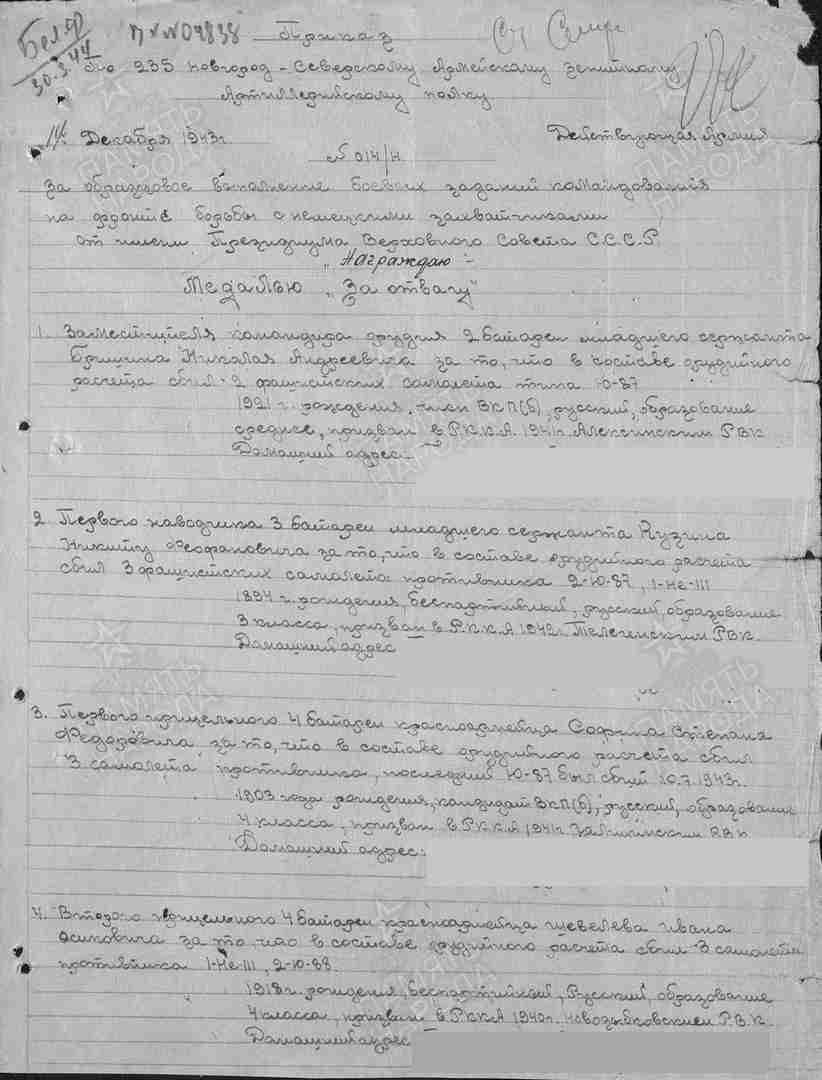 Беляр
30.3.44
П v N04838
Приказ
По 235 Новгород-Северскому Армейскому зенитному
Артиллерийскому полку
14 Декабря 1943г.
Действующая Армия
№ 014/н
За образцовое выполнение боевых заданий командования
на фронте борьбы с немецкими захватчиками
от имени Президиума Верховного Совета С.С.С.Р.
"Награждаю:-
Медалью "За отвагу"
1. Заместителя командира орудия 2 батареи младшего сержанта
Николая Андреевича за то, что в составе орудийного
расчета сбил 2 фашийских самолета типа Ю-87
1921 г. рождения, член ВКП(б), русский, образование
среднее, призван в Р.К.К.А. 1941г. Алексинским РВК
Домашний адрес:-
2. Первого наводчика 3 батареи младшего сержанта Кузина
Никиту Феофановича за то, что в составе орудийного расчета
сбил 3 фашийских самолета противника 2-Ю-87, 1-Не-111
1894 г. рождения, беспартийный, русский, образование
3 класса, призван в Р.К.К.А 1942г. РВК.
Домашний адрес
3. Первого прицельного 4 батареи красноармейца Софина Степана
Федоровича за то, что в составе орудийного расчета сбил
3 самолета противника, последний Ю-87 был сбит 10.7.1943г.
1903 года рождения, кандидат ВКП(б), русский, образование
4 класса, призван в Р.К.К.А 1941г. РВК
Домашний адрес:
4. Второго прицельного 4 батареи красноармейца Шевелева Ивана
Осиповича за то, что в составе орудийного расчета сбил 3 самолета
противника 1-Не-111, 2-Ю-88.
1918 г. рождения, беспартийный, Русский, образование
4 класса, призван в Р.К.К.А 1940г. Новозыбковским Р.В.К.
Домашний адрес
ПАМЯТЬ
НАРОДА